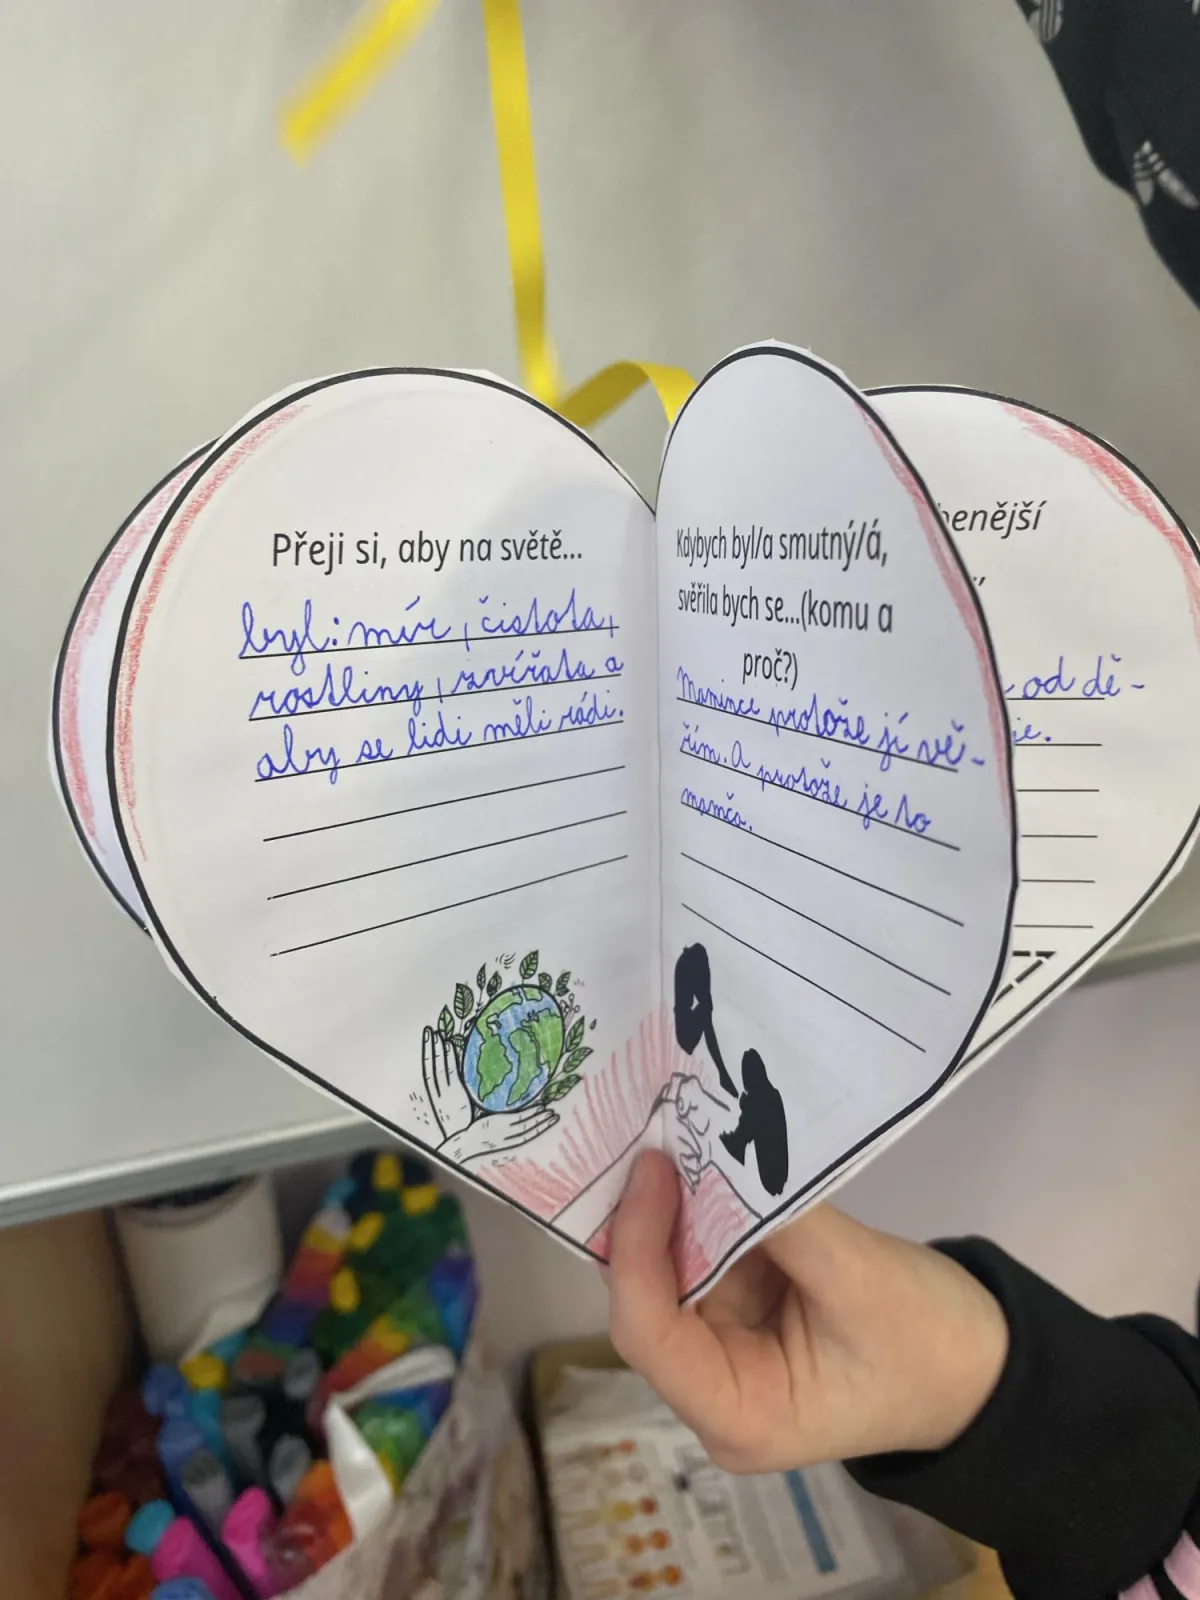 Přeji si, aby na světě...
byl: mír, čistota,
rostliny, zvířata a
aby se lidi měli rádi.
Kdybych byl/a smutný/á,
svěřila bych se...(komu a
proč?)
Mamince protože jí vě-
řím. A protože je to
mamča.
benější
od dě-
ie.